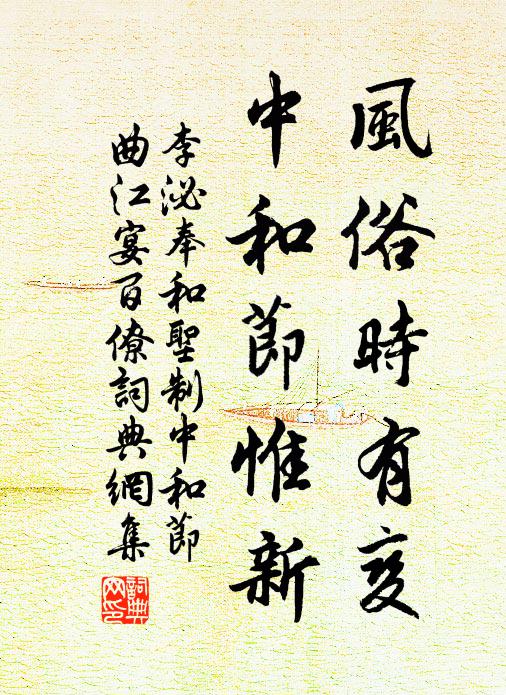 風俗時有变
中和節惟新
李泌奉和聖制中和節
曲江宴百僚詞典網集
詞典
网印